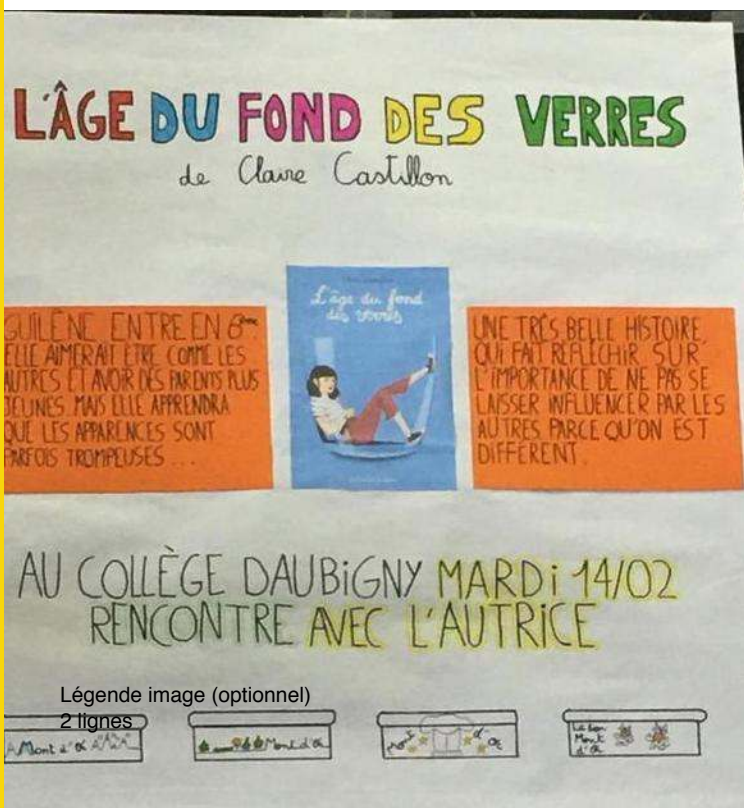 L'ÂGE DU FOND DES VERRES
de Claire Castillon
GUILÈNE ENTRE EN 6ème
ELLE AIMERAIT ETRE COMME LES
AUTRES ET AVOIR DES PARENTS PLUS
JEUNES. MAIS ELLE APPRENDRA
QUE LES APPARENCES SONT
PARFOIS TROMPEUSES ...
L'âge du fond
des verres
UNE TRÈS BELLE HISTOIRE,
QUI FAIT REFLECHIR SUR
L'IMPORTANCE DE NE PAS SE
LAISSER INFLUENCER PAR LES
AUTRES PARCE QU'ON EST
DIFFERENT.
AU COLLÈGE DAUBiGNY MARDi 14/02
RENCONTRE AVEC L'AUTRiCE
Légende image (optionnel)
2 lignes
Mont d'Or
Mont d'Or
Mont d'Or
Le bon
Mont
d'Or